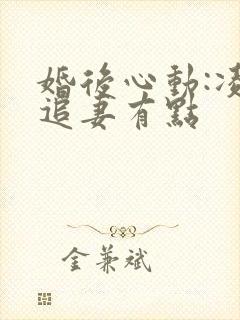 婚後心動:凌
追妻有點
金兼斌